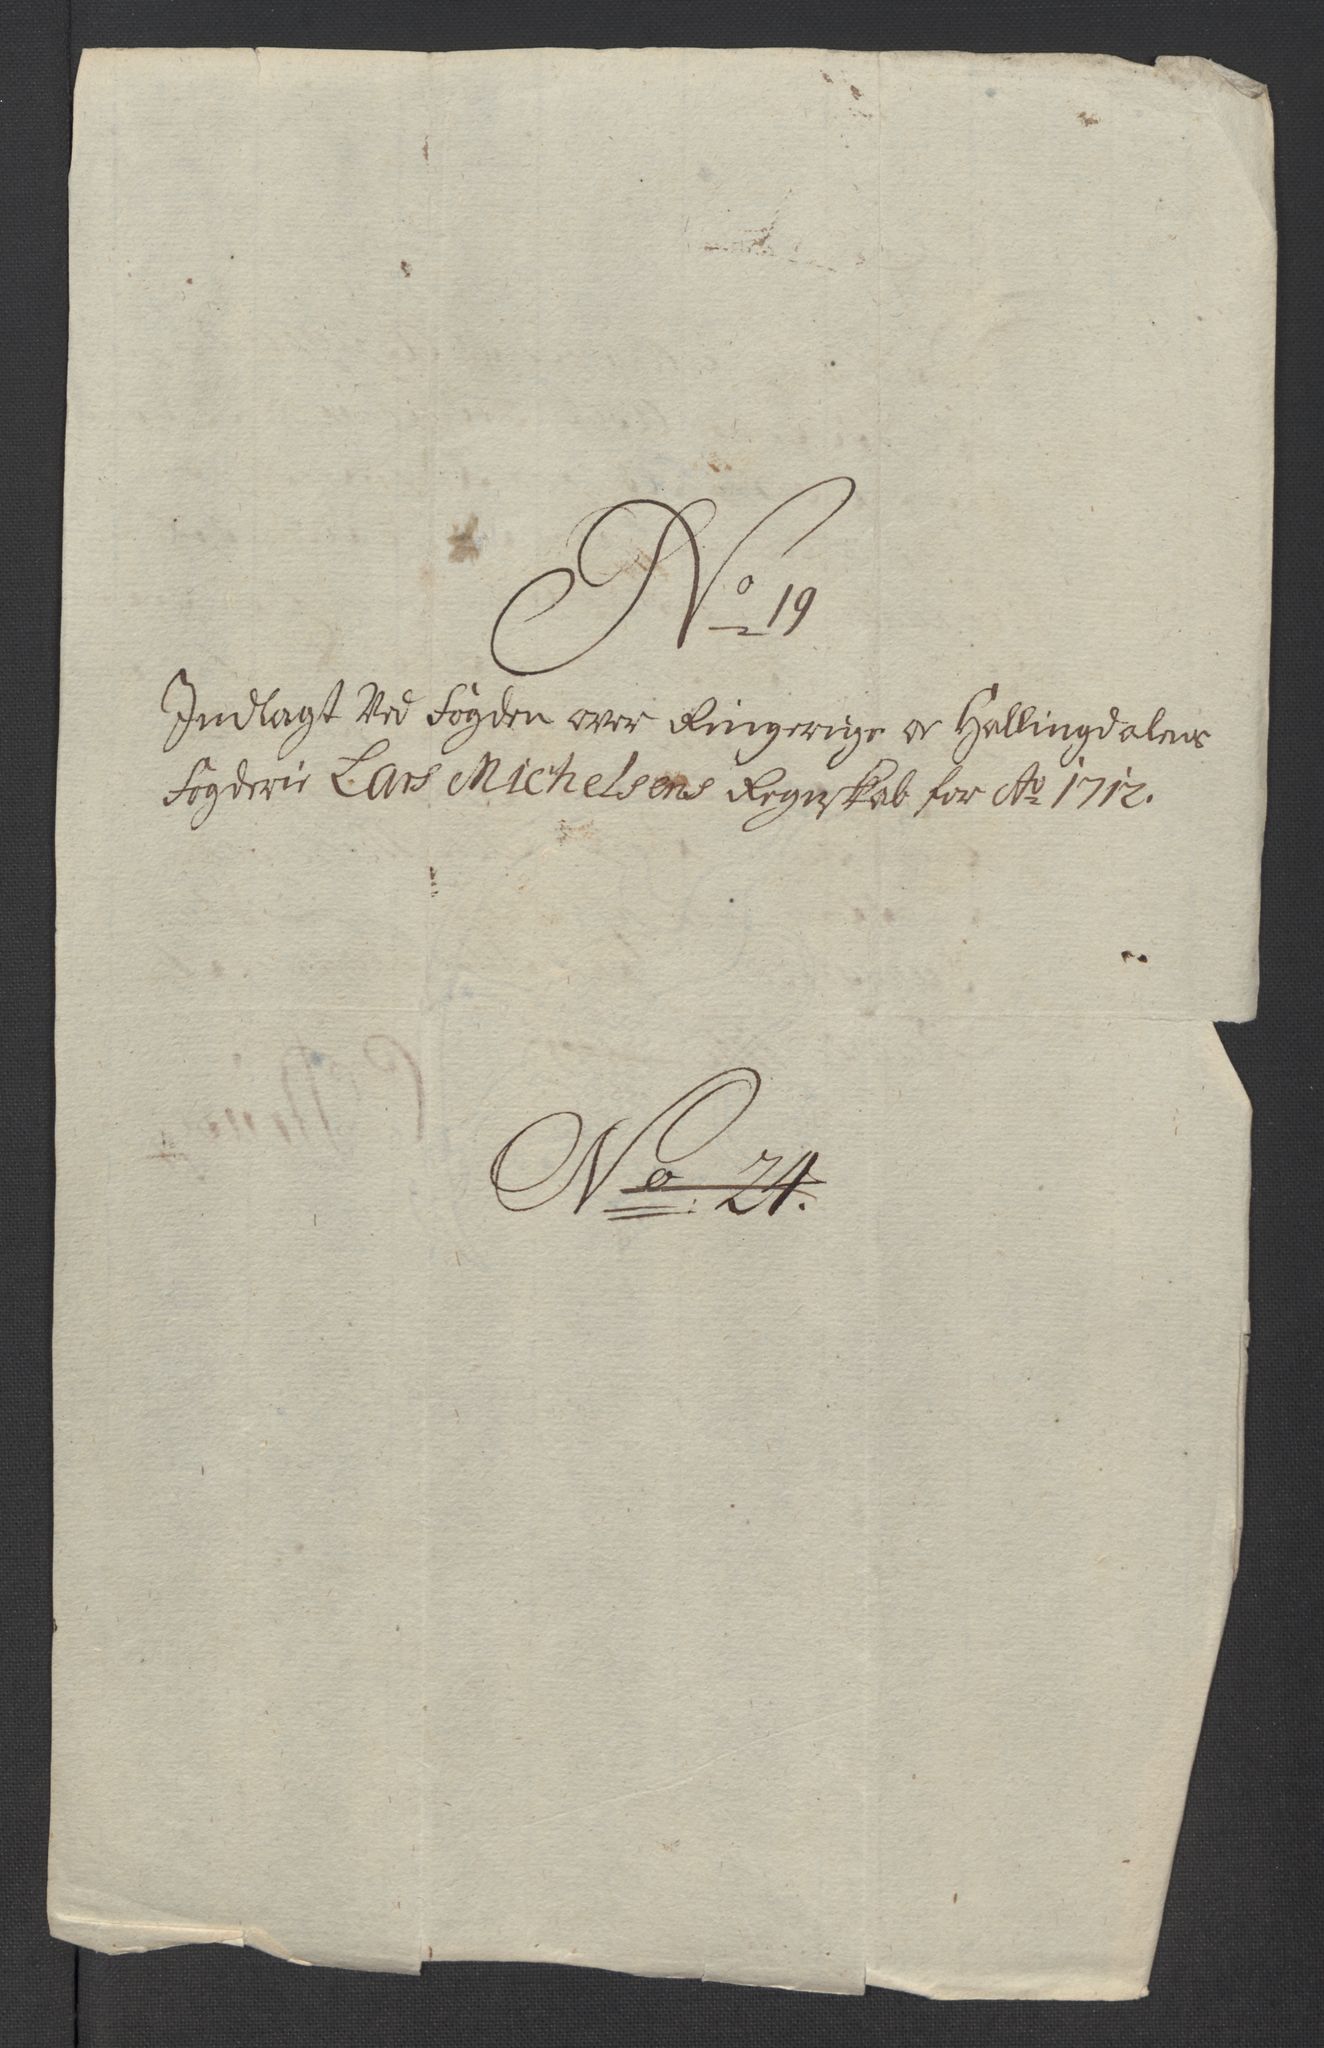 No 19
Indlagt Ved Fogden over Ringerige oc Hallingdalens
Fogderie Lars Michelsens Regnskab for Ao 1712.
No: 24.